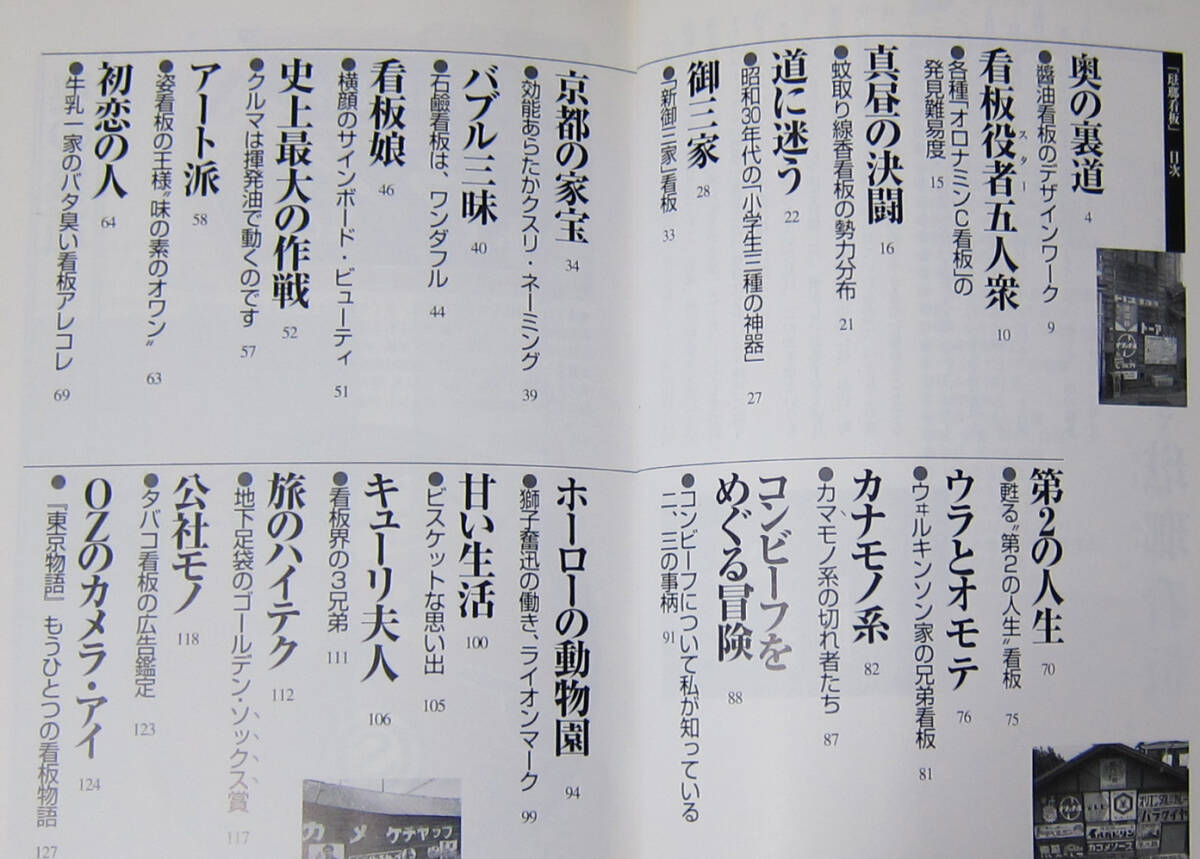 『琺瑯看板』 目次
奥の裏道 4
●醬油看板のデザインワーク 9
看板役者五人衆 10
スター
●各種「オロナミンC看板」の
発見難易度 15
真昼の決闘 16
●蚊取り線香看板の勢力分布 21
道に迷う 22
●昭和30年代の「小学生三種の神器」 27
御三家 28
●「新御三家」看板 33
京都の家宝 34
●効能あらたかクスリ・ネーミング 39
バブル三昧 40
●石鹼看板は、ワンダフル 44
看板娘 46
●横顔のサインボード・ビューティ 51
史上最大の作戦 52
●クルマは揮発油で動くのです 57
アート派 58
●姿看板の王様〝味の素のオワン〟 63
初恋の人 64
●牛乳一家のバタ臭い看板アレコレ 69
第2の人生 70
●甦る〝第2の人生〟看板 75
ウラとオモテ 76
●ウヰルキンソン家の兄弟看板 81
カナモノ系 82
●カマモノ系の切れ者たち 87
コンビーフを
めぐる冒険 88
●コンビーフについて私が知っている
二、三の事柄 91
ホーローの動物園 94
●獅子奮迅の働き、ライオンマーク 99
甘い生活 100
●ビスケットな思い出 105
キューリ夫人 106
●看板界の3兄弟 111
旅のハイテク 112
●地下足袋のゴールデン・ソックス賞 117
公社モノ 118
●タバコ看板の広告鑑定 123
OZのカメラ・アイ 124
●『東京物語』もうひとつの看板物語 127
カメ
ケチャップ
カゴメソース